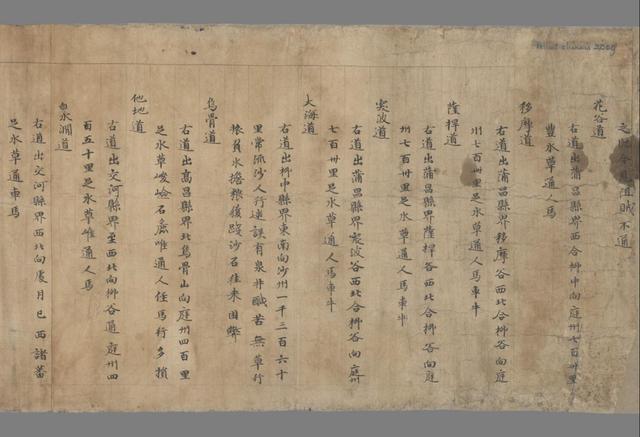 Pelliot chinois 2009
之 阻賊不通
花谷道
右道出蒲昌縣界西合柳中向庭州七百卅里
豐水草通人馬
移摩道
右道出蒲昌縣界移摩谷西北合柳谷向庭
州七百卅里足水草通人馬車牛
薩捍道
右道出蒲昌縣界薩捍谷西北合柳谷向庭
州七百卅里足水草通人馬車牛
突波道
右道出蒲昌縣界突波谷西北合柳谷向庭州
七百卅里足水草通人馬車牛
大海道
右道出柳中縣界東南向沙州一千三百六十
里常流沙人行迷誤有泉井醎苦無草行
旅負水擔粮履踐沙石往來困弊
烏骨道
右道出高昌縣界北烏骨山向庭州四百里
足水草峻嶮石麁唯通人徑馬行多損
他地道
右道出交河縣界至西北向柳谷通庭州四
百五十里足水草唯通人馬
白水澗道
右道出交河縣界西北向處月已西諸蕃
足水草通車馬